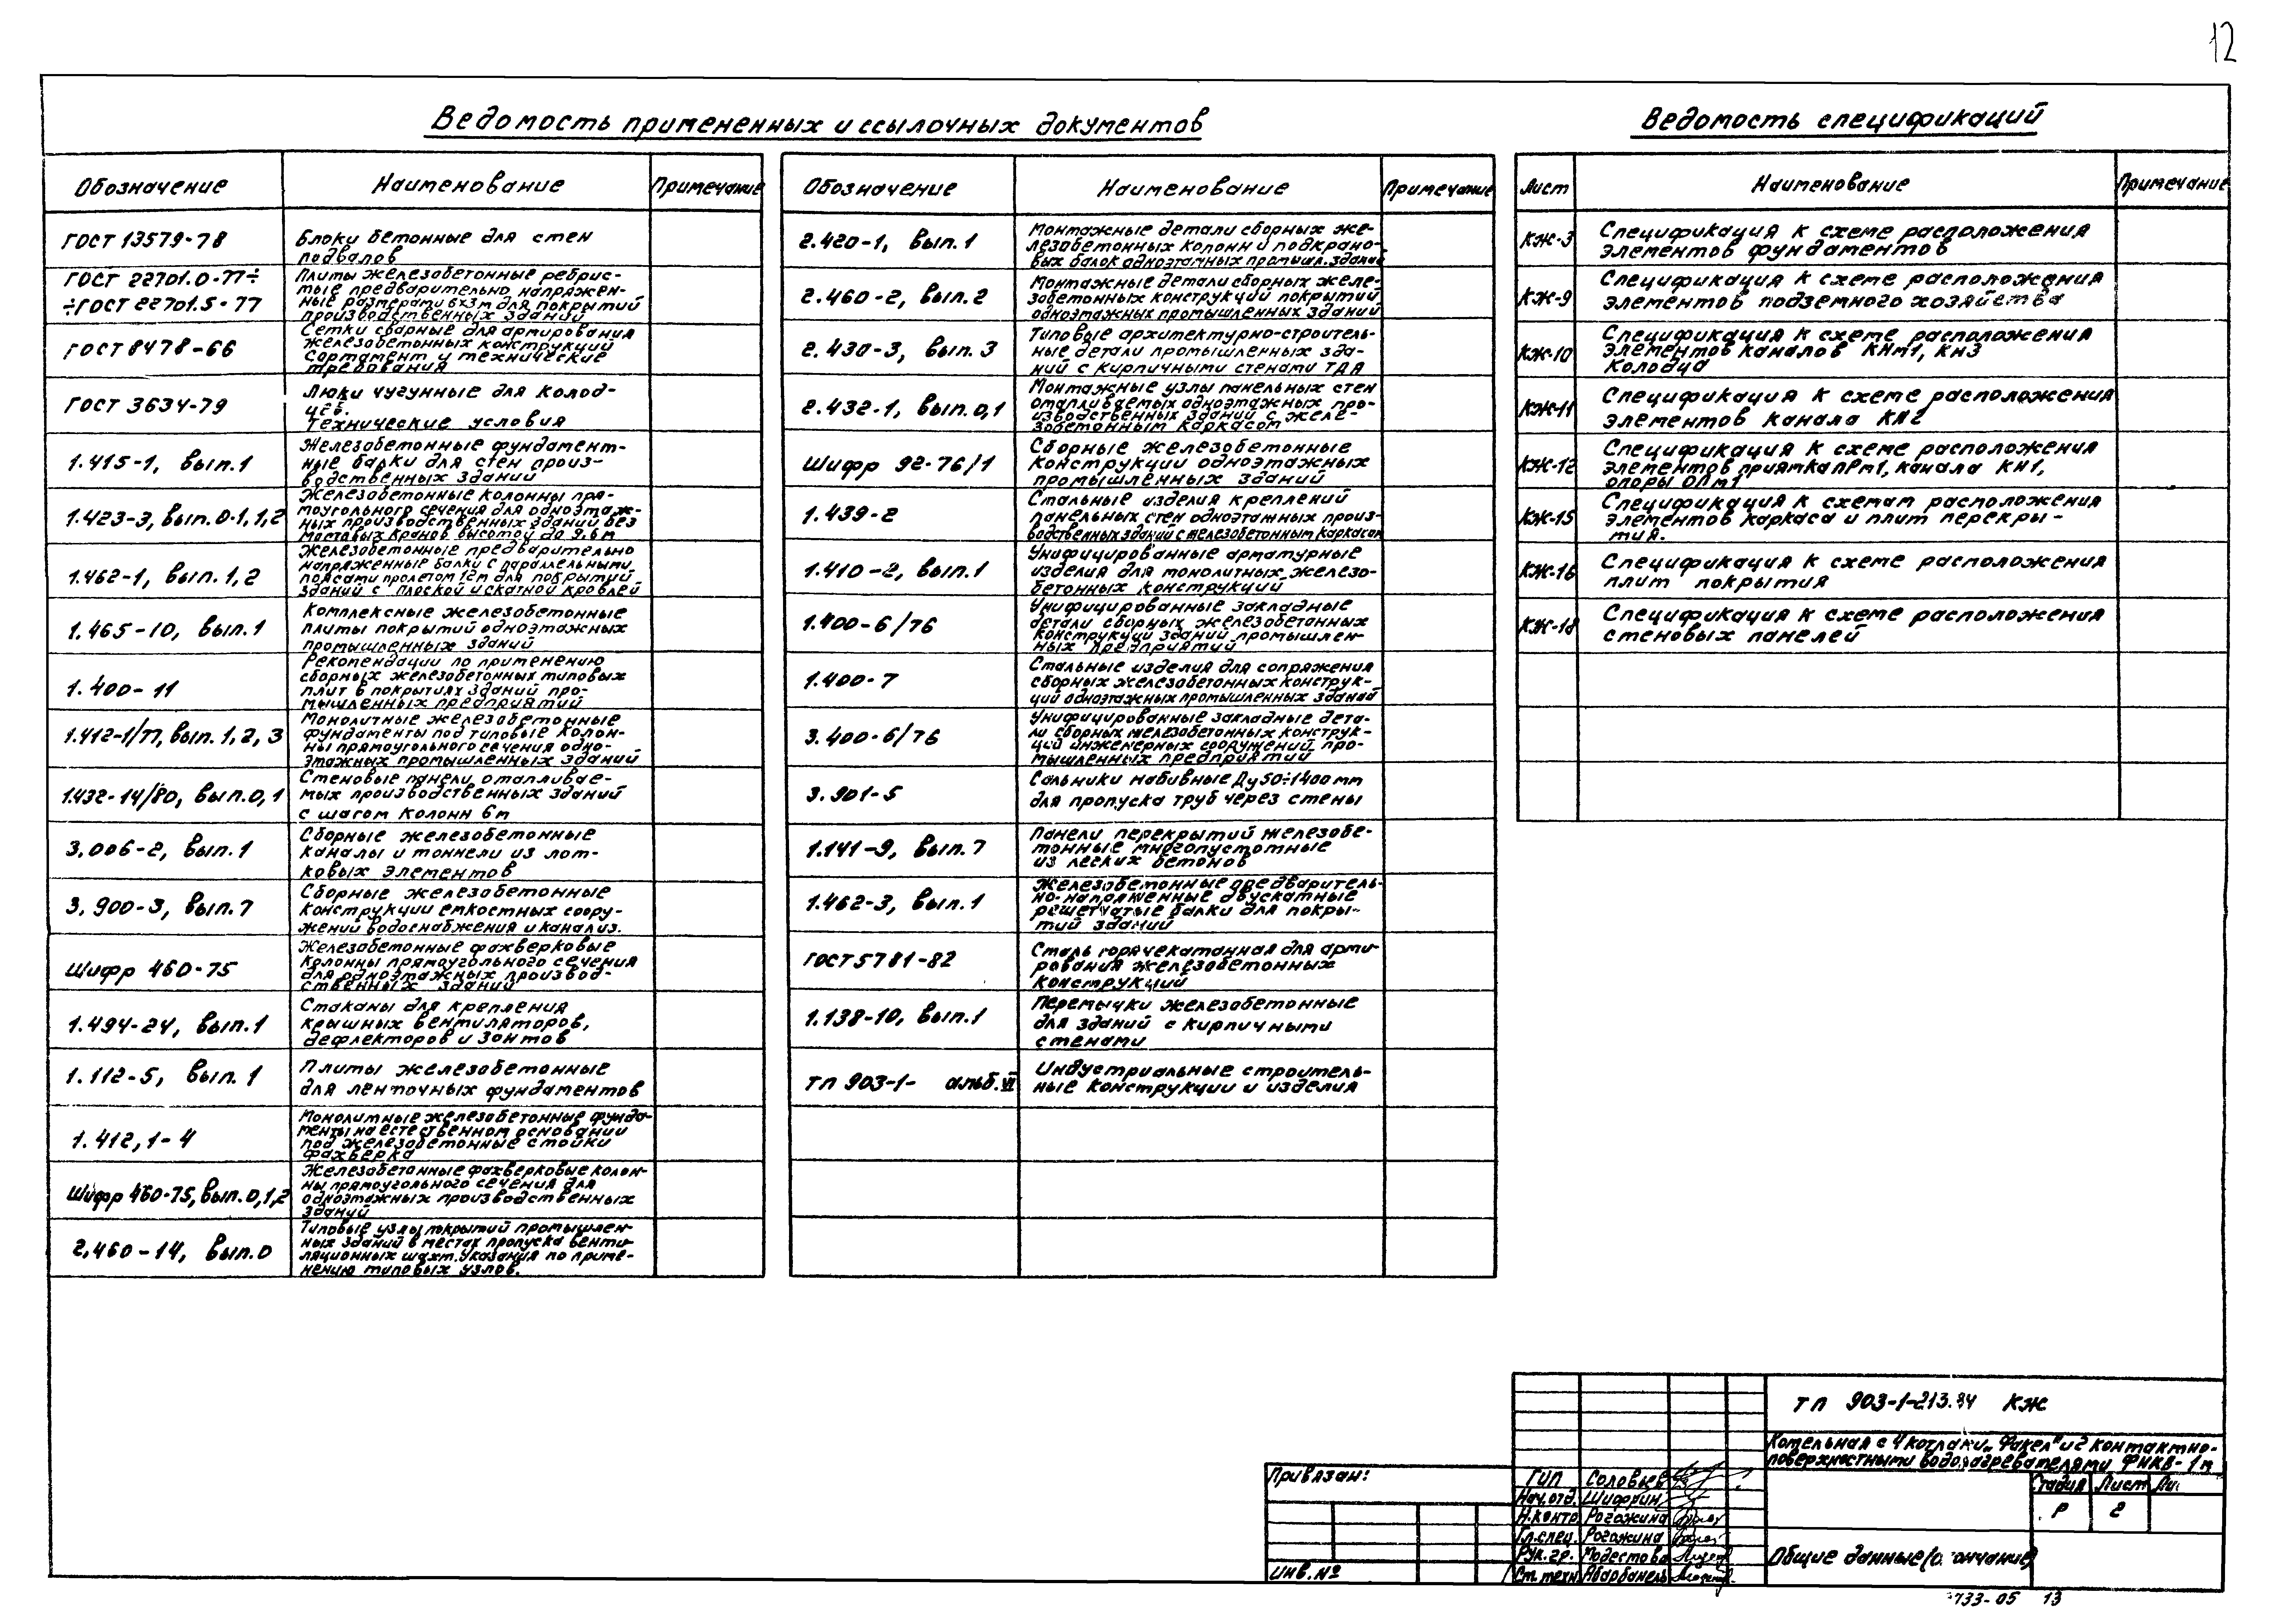 12
Ведомость примененных и ссылочных документов
Обозначение Наименование Примечание
ГОСТ 13579-78 Блоки бетонные для стен
подвалов
ГОСТ 22701.0-77÷
÷ГОСТ 22701.5-77
Плиты железобетонные ребрис-
тые предварительно напряжен-
ные размерами 6х3м для покрытий
производственных зданий
ГОСТ 8478-66
Сетки сварные для армирования
железобетонных конструкций
Сортамент и технические
требования
ГОСТ 3634-79
Люки чугунные для колод-
цев.
Технические условия
1.415-1, вып.1
Железобетонные фундамент-
ные балки для стен произ-
водственных зданий
1.423-3, вып.0-1,1,2
Железобетонные колонны пря-
моугольного сечения для одноэтаж-
ных производственных зданий без
мостовых кранов высотой до 9.6м
1.462-1, вып.1,2
Железобетонные предварительно
напряженные балки с параллельными
поясами пролетом 12м для покрытий
зданий с плоской и скатной кровлей
1.465-10, вып.1
Комплексные железобетонные
плиты покрытий одноэтажных
промышленных зданий
1.400-11
Рекомендации по применению
сборных железобетонных типовых
плит в покрытиях зданий про-
мышленных предприятий
1.412-1/77, вып.1,2,3
Монолитные железобетонные
фундаменты под типовые колон-
ны прямоугольного сечения одно-
этажных промышленных зданий
1.432-14/80, вып.0,1
Стеновые панели отапливае-
мых производственных зданий
с шагом колонн 6м
3.006-2, вып.1
Сборные железобетонные
каналы и тоннели из лот-
ковых элементов
3.900-3, вып.7
Сборные железобетонные
конструкции емкостных соору-
жений водоснабжения и канализ.
Шифр 460-75
Железобетонные фахверковые
колонны прямоугольного сечения
для одноэтажных производ-
ственных зданий
1.494-24, вып.1
Стаканы для крепления
крышных вентиляторов,
дефлекторов и зонтов
1.112-5, вып.1
Плиты железобетонные
для ленточных фундаментов
1.412,1-4
Монолитные железобетонные фунда-
менты на естественном основании
под железобетонные стойки
фахверка
Шифр 460-75, вып.0,1,2
Железобетонные фахверковые колон-
ны прямоугольного сечения для
одноэтажных производственных
зданий
2.460-14, вып.0
Типовые узлы покрытий промышлен-
ных зданий в местах пропуска венти-
ляционных шахт. Указания по приме-
нению типовых узлов.
Обозначение Наименование Примечание
2.420-1, вып.1
Монтажные детали сборных же-
лезобетонных колонн и подкрано-
вых балок одноэтажных промышл. зданий
2.460-2, вып.2
Монтажные детали сборных желе-
зобетонных конструкций покрытий
одноэтажных промышленных зданий
2.430-3, вып.3
Типовые архитектурно-строитель-
ные детали промышленных зда-
ний с кирпичными стенами ТДА
2.432-1, вып.0,1
Монтажные узлы панельных стен
отапливаемых одноэтажных про-
изводственных зданий с желе-
зобетонным каркасом
Шифр 92-76/1
Сборные железобетонные
конструкции одноэтажных
промышленных зданий
1.439-2
Стальные изделия креплений
панельных стен одноэтажных произ-
водственных зданий с железобетонным каркасом
1.410-2, вып.1
Унифицированные арматурные
изделия для монолитных железо-
бетонных конструкций
1.400-6/76
Унифицированные закладные
детали сборных железобетонных
конструкций зданий промышлен-
ных предприятий
1.400-7
Стальные изделия для сопряжения
сборных железобетонных конструк-
ций одноэтажных промышленных зданий
3.400-6/76
Унифицированные закладные дета-
ли сборных железобетонных конструк-
ций инженерных сооружений про-
мышленных предприятий
3.901-5
Сальники набивные Ду50÷1400мм
для пропуска труб через стены
1.141-9, вып.7
Панели перекрытий железобе-
тонные многопустотные
из легких бетонов
1.462-3, вып.1
Железобетонные предваритель-
но-напряженные двускатные
решетчатые балки для покры-
тий зданий
ГОСТ 5781-82
Сталь горячекатанная для арми-
рования железобетонных
конструкций
1.138-10, вып.1
Перемычки железобетонные
для зданий с кирпичными
стенами
ТП 903-1- альб.VI
Индустриальные строитель-
ные конструкции и изделия
Ведомость спецификаций
Лист Наименование Примечание
КЖ-3
Спецификация к схеме расположения
элементов фундаментов
КЖ-9
Спецификация к схеме расположения
элементов подземного хозяйства
КЖ-10
Спецификация к схеме расположения
элементов каналов КНм1, КН3
Колодца
КЖ-11
Спецификация к схеме расположения
элементов канала КЛ2
КЖ-12
Спецификация к схеме расположения
элементов приямка ПРм1, канала КН1,
опоры ОПм1
КЖ-15
Спецификация к схемам расположения
элементов каркаса и плит перекры-
тия.
КЖ-16
Спецификация к схеме расположения
плит покрытия
КЖ-18
Спецификация к схеме расположения
стеновых панелей
ТП 903-1-213.84 КЖ
Котельная с 4 котлами „Факел" и 2 контактно-
поверхностными водонагревателями ФНКВ-1м
Привязан:
Инв.№
ГИП Соловьев
Нач.отд. Шифрин
Н.контр. Рогожина
Гл.спец. Рогожина
Рук.гр. Модестова
Ст.техн. Абарбанель
Стадия Лист
Р 2
Общие данные (окончание)
733-05 13